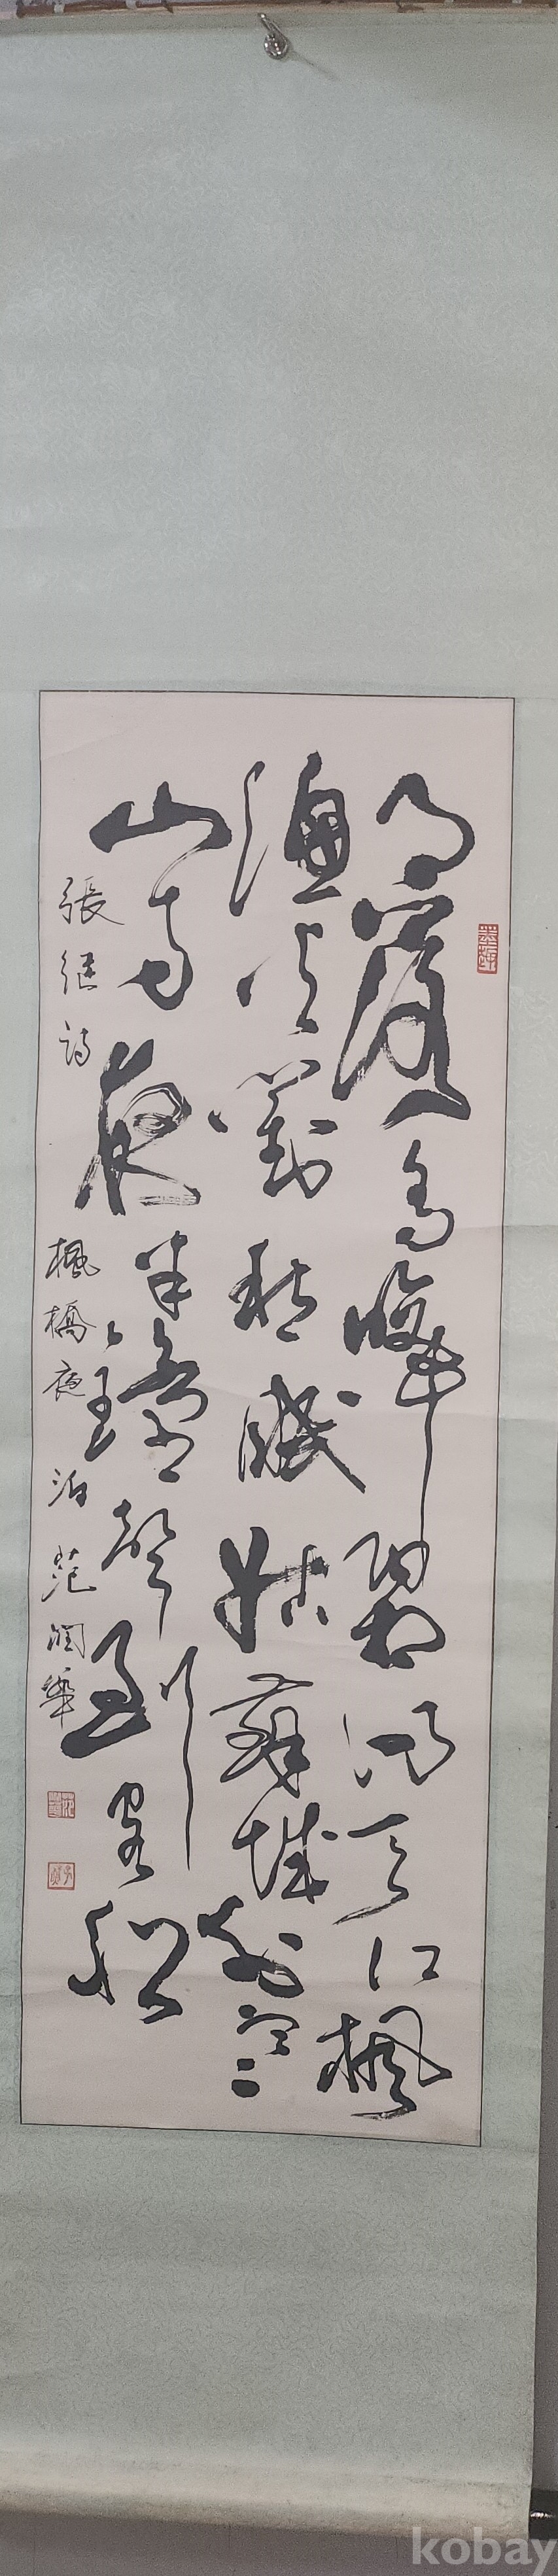 月落烏啼霜滿天江楓
漁火對愁眠姑蘇城外寒
山寺夜半鐘聲到客船
張继詩 楓橋夜泊 范润華
kobay